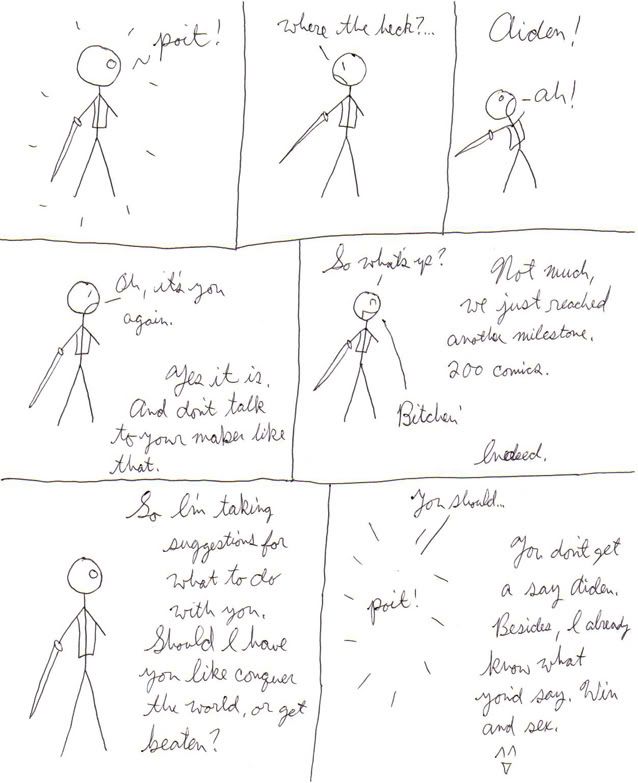 poit!
where the heck?...
Aiden!
ah!
Oh, it's you
again.
Yes it is.
And don't talk
to your maker like
that.
So what's up?
Not much,
we just reached
another milestone.
200 comics.
Bitchen'
Indeed.
So I'm taking
suggestions for
what to do
with you.
Should I have
you like conquer
the world, or get
beaten?
You should...
poit!
You don't get
a say Aiden.
Besides, I already
know what
you'd say. Win
and sex.
^^